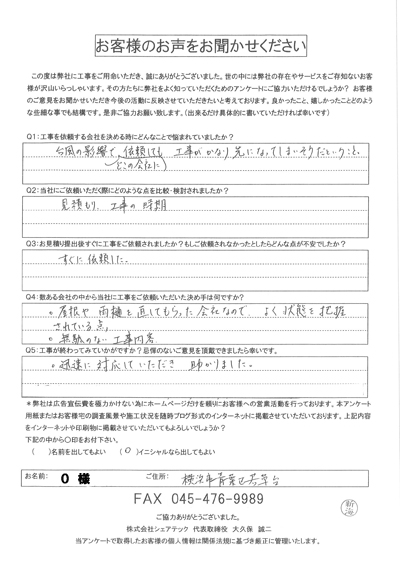 お客様のお声をお聞かせください
この度は弊社に工事をご用命いただき、誠にありがとうございました。世の中には弊社の存在やサービスをご存知ないお客
様が沢山いらっしゃいます。その方たちに弊社をよく知っていただくためのアンケートにご協力いただけるでしょうか？ お客
様のご意見をお聞かせいただき今後の活動に反映させていただきたいと考えております。良かったこと、嬉しかったことどのよう
な些細な事でも結構です。是非ご協力お願い致します。（出来るだけ具体的に書いていただければ幸いです）
Q1:工事を依頼する会社を決める時にどんなことで悩まれていましたか？
台風の影響で、依頼しても 工事がかなり先になってしまいそうだということ。
（どこの会社に）
Q2:当社にご依頼いただく際にどのような点を比較・検討されましたか？
見積もり、工事の時期
Q3:お見積り提出後すぐに工事をご依頼されましたか？もしご依頼されなかったとしたらどんな点が不安でしたか？
すぐに依頼した。
Q4:数ある会社の中から当社に工事をご依頼いただいた決め手は何ですか？
○屋根や雨樋を直してもらった会社なので、よく状態を把握
されている点。
○無駄のない工事内容
Q5:工事が終わってみていかがですか？忌憚のないご意見を頂戴できましたら幸いです。
○迅速に対応していただき 助かりました。
＊弊社は広告宣伝費を極力かけない為にホームページだけを頼りにお客様への営業活動を行っております。本アンケート
用紙またはお客様宅の調査風景や施工状況を随時ブログ形式のインターネットに掲載させていただいております。上記内容
をインターネットや印刷物に掲載させていただいてもよろしいでしょうか？
下記の中から○印をお付け下さい。
（　）名前を出してもよい （○）イニシャルなら出してもよい
お名前: O 様 ご住所: 横浜市青葉区若草台
FAX 045-476-9989
ご協力ありがとうございました。
株式会社シェアテック 代表取締役 大久保 誠二
当アンケートで取得したお客様の個人情報は関係法規に基づき厳正に管理いたします。